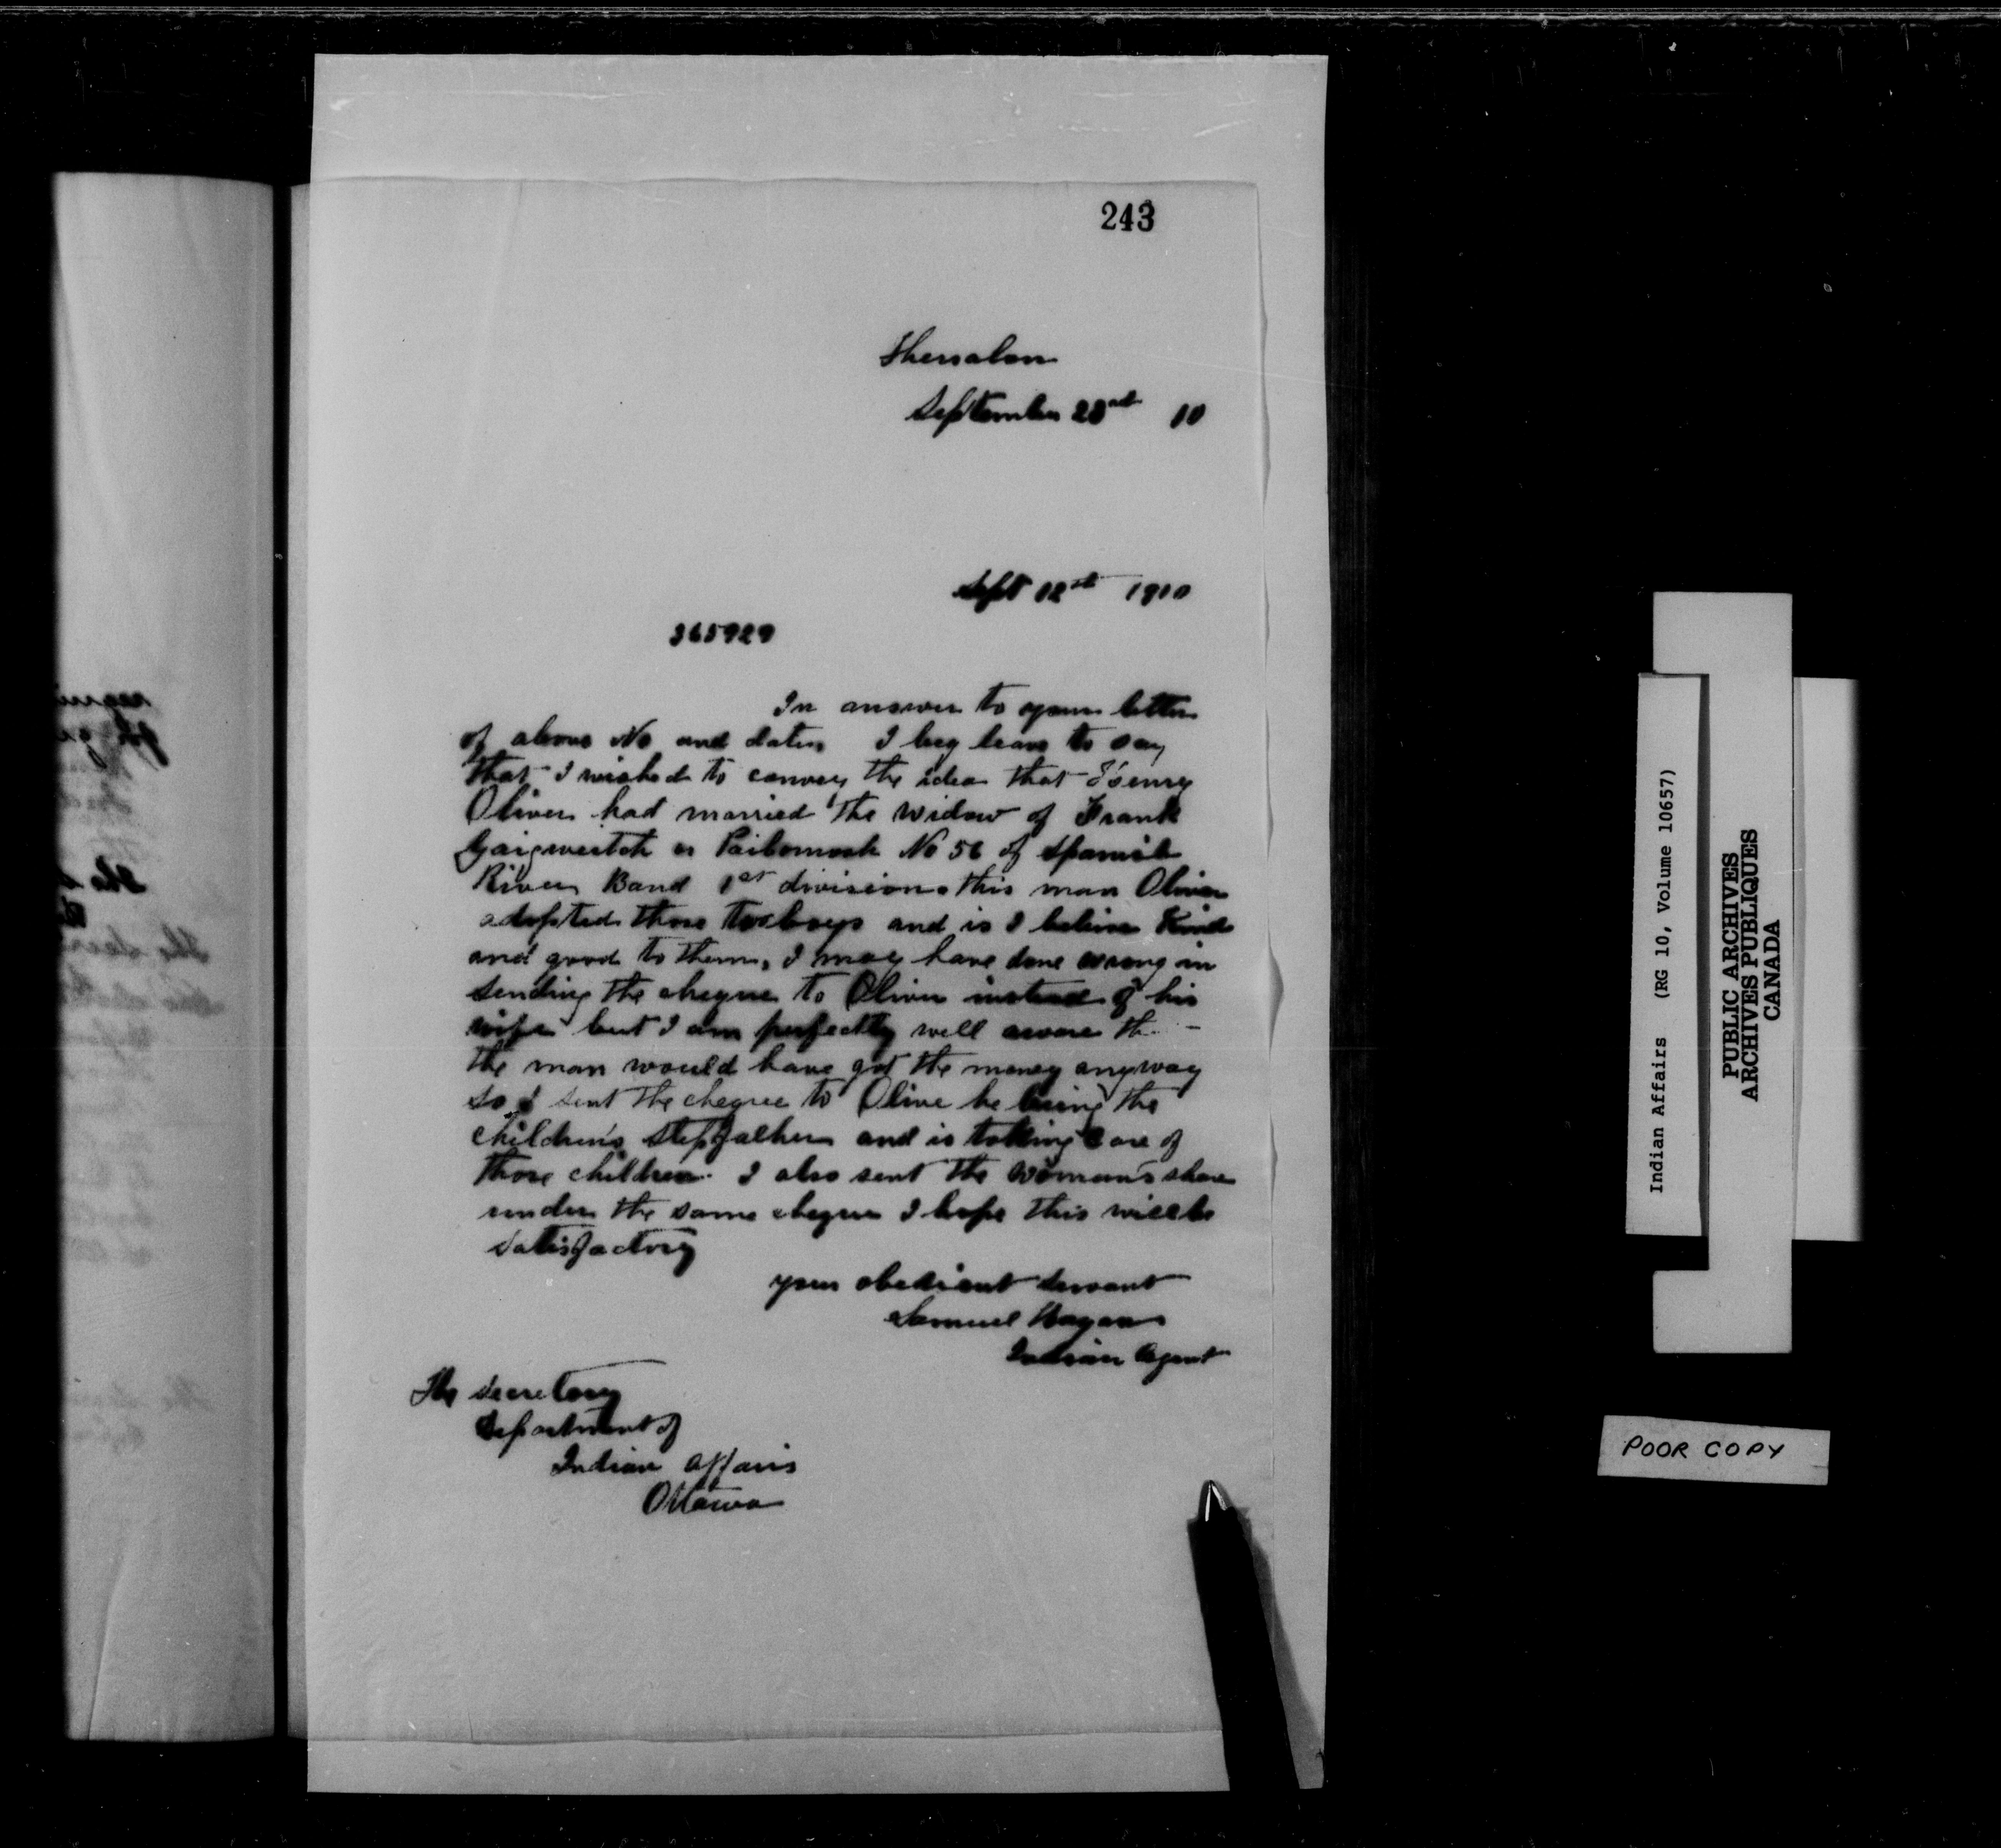 243
Thessalon
September 23rd 10
Sept 12th 1910
365929
In answer to your letter
of above No and date, I beg leave to say
that I wished to convey the idea that Henry
Oliver had married the widow of Frank
or No 56 of Spanish
River Band 1st division. this man Oliver
adopted those two boys and is I believe Kind
and good to them, I may have done wrong in
sending the cheque to Oliver instead of his
wife but I am perfectly well aware th
the man would have got the money anyway
so I sent the cheque to Olive he being the
children's stepfather and is taking care of
those children. I also sent the woman's share
under the same cheque I hope this will be
satisfactory
your obedient servant
Samuel Hagan
Indian Agent
The Secretary
Department of
Indian Affairs
Ottawa
Indian Affairs (RG 10, Volume 10657)
PUBLIC ARCHIVES
ARCHIVES PUBLIQUES
CANADA
POOR COPY